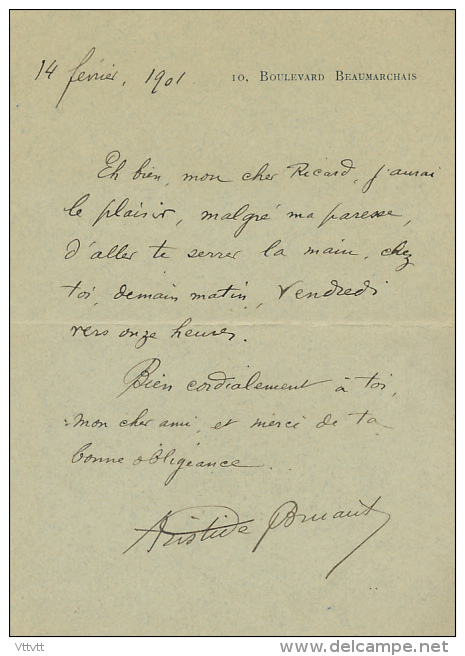 14 février, 1901
10, Boulevard Beaumarchais
Eh bien, mon cher Ricard, j'aurai
le plaisir, malgré ma paresse,
d'aller te serrer la main, chez
toi, demain matin, Vendredi
vers onze heures.
Bien cordialement à toi,
mon cher ami, et merci de ta
bonne obligeance...
Aristide Bruant
Vttvtt
delcampe.net